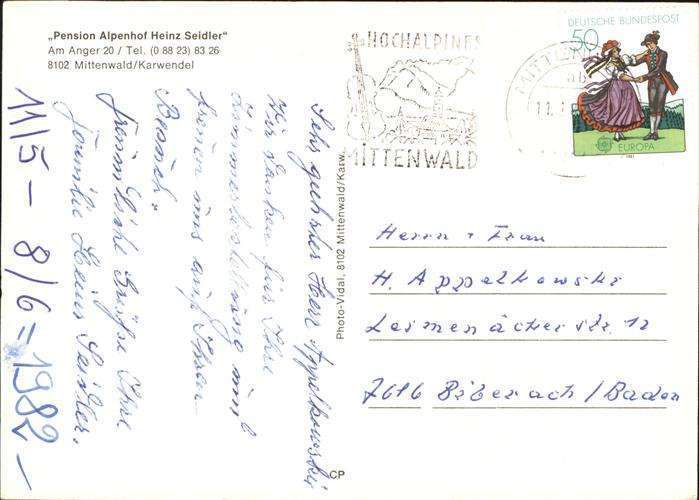 „Pension Alpenhof Heinz Seidler“
Am Anger 20 / Tel. (0 88 23) 83 26
8102 Mittenwald/Karwendel
HOCHALPINES
MITTENWALD
DEUTSCHE BUNDESPOST
50
EUROPA
Sehr geehrter Herr Appelkowski
Wir danken für Ihre
Zimmerbestellung und
freuen uns auf Ihren
Besuch.
Freundliche Grüße Ihre
Familie Heinz Seidler.
11/5 – 8/6 = 1982 –
Photo-Vidal, 8102 Mittenwald/Karw.
CP
Herrn + Frau
H. Appelkowski
Leimenäckerstr. 12
7616 Biberach / Baden